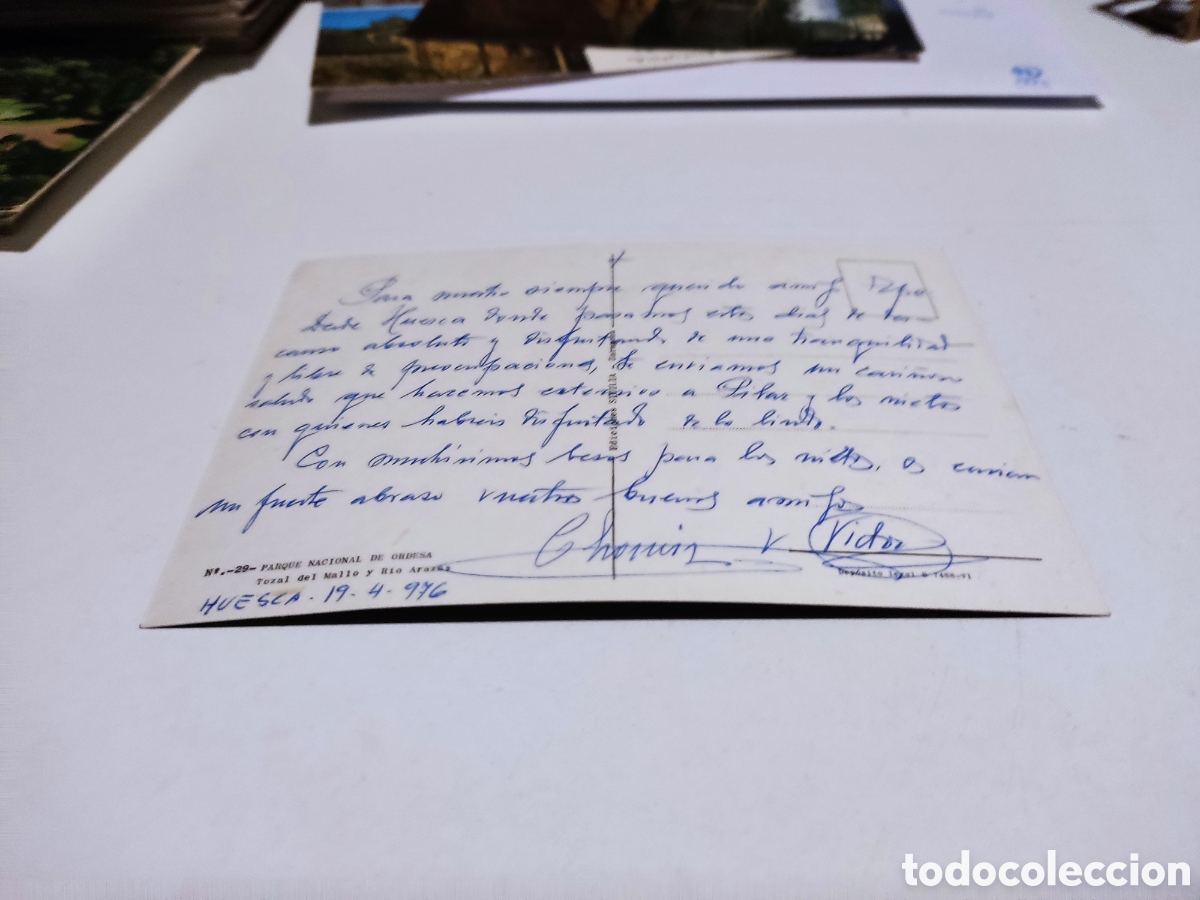 Para nuestro siempre querido amigo Pepe
Desde Huesca donde pasamos estos dias de des-
canso absoluto y disfrutando de una tranquilidad
y libre de preocupaciones, te enviamos un cariñoso
saludo que hacemos extensivo a Pilar y los nietos
con quienes habreis disfrutado de lo lindo.
Con muchisimos besos para los nietos, os envian
un fuerte abrazo vuestros buenos amigos
Chomin y Victor
Nº.-29- PARQUE NACIONAL DE ORDESA
Tozal del Mallo y Rio Arazas
HUESCA - 19-4-976
Ediciones SICILIA
Depósito legal B 7466-71
todocoleccion